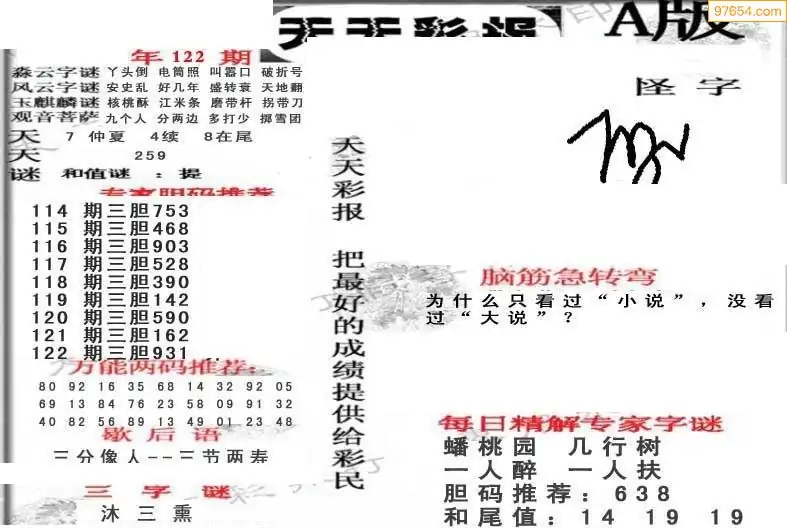 天天彩报
A版
97654.com
年 122 期
森云字谜 丫头倒 电筒照 叫嚣口 破折号
风云字谜 安史乱 好几年 盛转衰 天地翻
玉麒麟谜 核桃酥 江米条 磨带杆 拐带刀
观音菩萨 九个人 分两边 多打少 掷雪团
天 7 仲夏 4续 8在尾
天 259
谜 和值谜 : 提
专家胆码推荐
114 期三胆753
115 期三胆468
116 期三胆903
117 期三胆528
118 期三胆390
119 期三胆142
120 期三胆590
121 期三胆162
122 期三胆931
万能两码推荐:
80 92 16 35 68 14 32 92 05
69 13 84 76 23 58 09 91 32
40 82 56 89 13 49 01 23 48
歇后语
三分像人--三节两寿
三字谜
沐三熏
天天彩报 把最好的成绩提供给彩民
怪字
脑筋急转弯
为什么只看过“小说”，没看
过“大说”？
每日精解专家字谜
蟠桃园 几行树
一人醉 一人扶
胆码推荐: 638
和尾值: 14 19 19